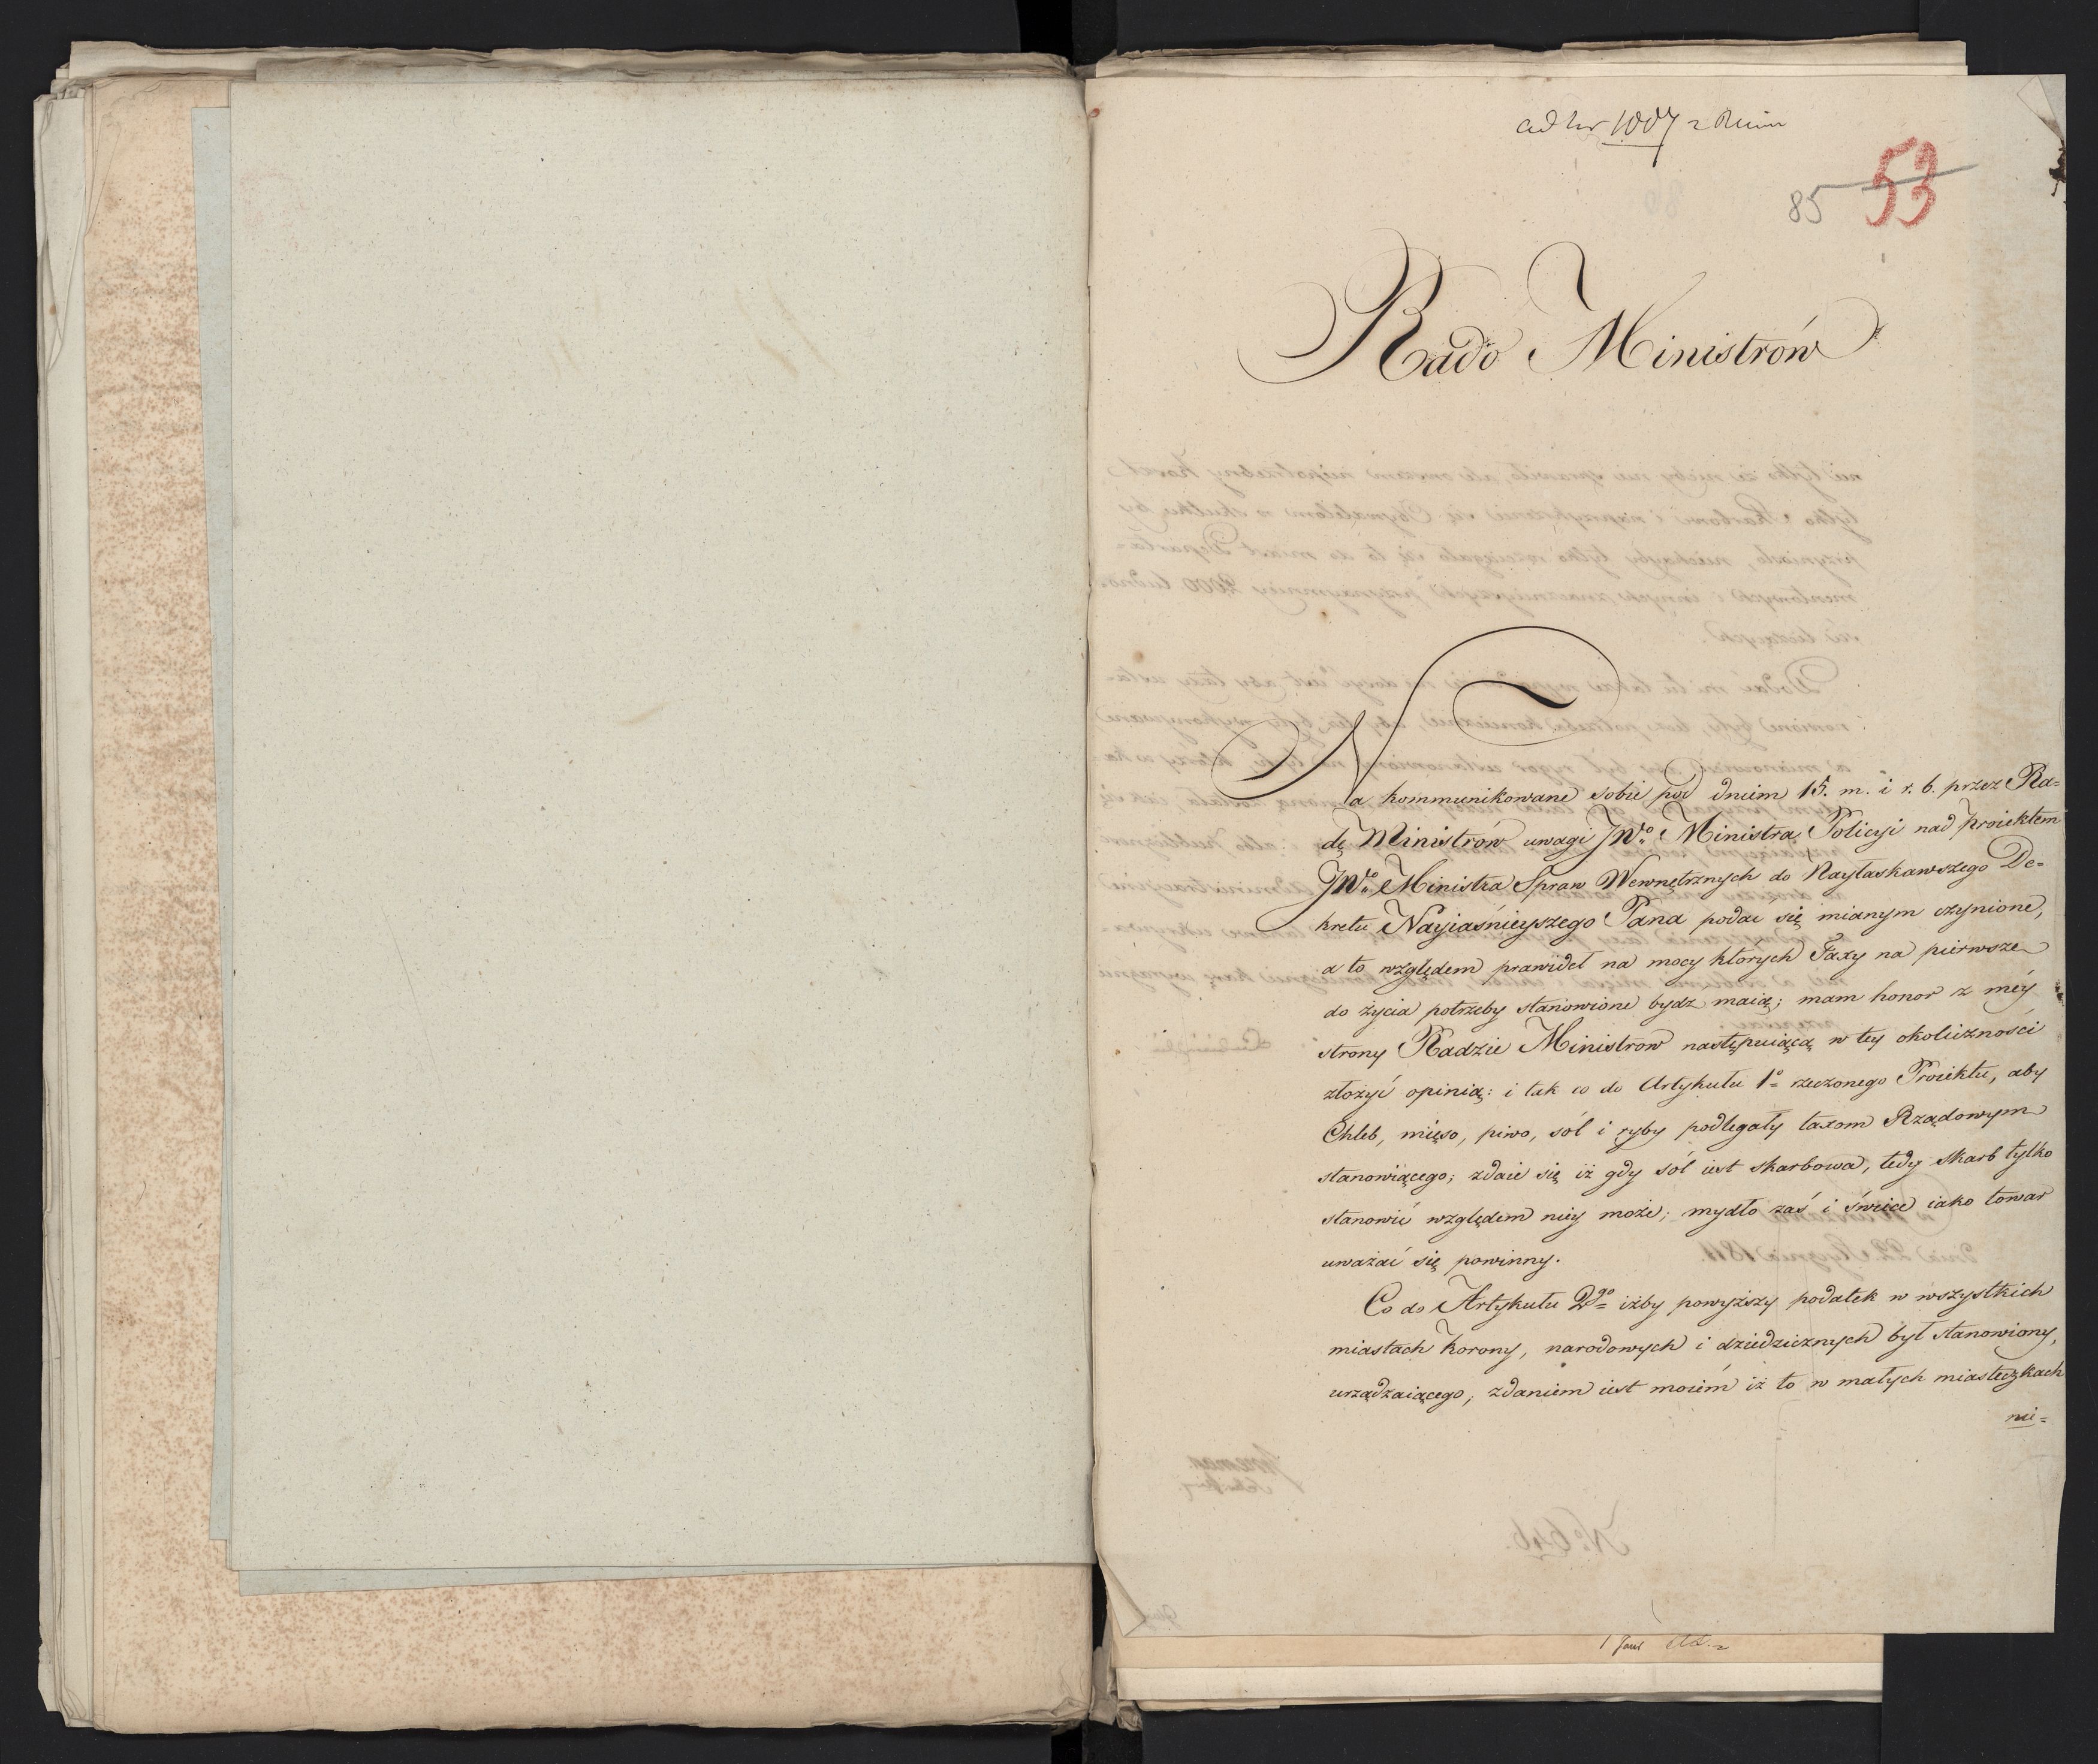 ad Nr 1007
85 53
Rado Ministrów
Na kommunikowane sobie pod dniem 15. m. i r. b. przez Ra=
dę Ministrów uwagi JWo Ministra Policyi nad Proiektem
JWo Ministra Spraw Wewnętrznych do Nayłaskawszego De=
kretu Nayiaśnieyszego Pana podać się mianym czynione,
a to względem prawideł na mocy których Taxy na pierwsze
do życia potrzeby stanowione bydz maią; mam honor z méy
strony Radzie Ministrow następuiącą w tey okoliczności
złożyć opinią: i tak co do Artykułu 1o rzeczonego Proiektu, aby
Chleb, mięso, piwo, sól i ryby podlegały taxom Rządowym
stanowiącego; zdaie się iż gdy sól iest skarbowa, tedy skarb tylko
stanowić względem niey może; mydło zaś i świece iako towar
uważać się powinny.
Co do Artykułu 2go iżby powyższy podatek w wszystkich
miastach Korony, narodowych i dziedzicznych był stanowiony,
urządzaiącego, zdaniem iest moiém iż to w małych miasteczkach
nie=